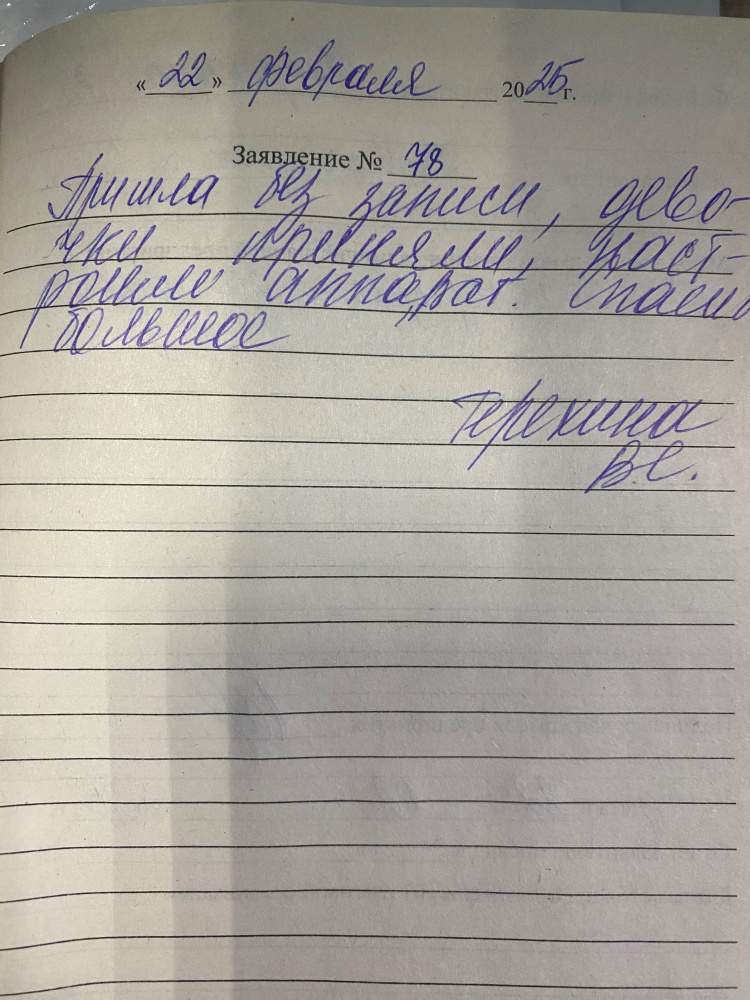 «22» февраля 2025 г.
Заявление № 78
Пришла без записи, дево-
чки приняли, наст-
роили аппарат. Спасибо
большое
Терехина
В.С.